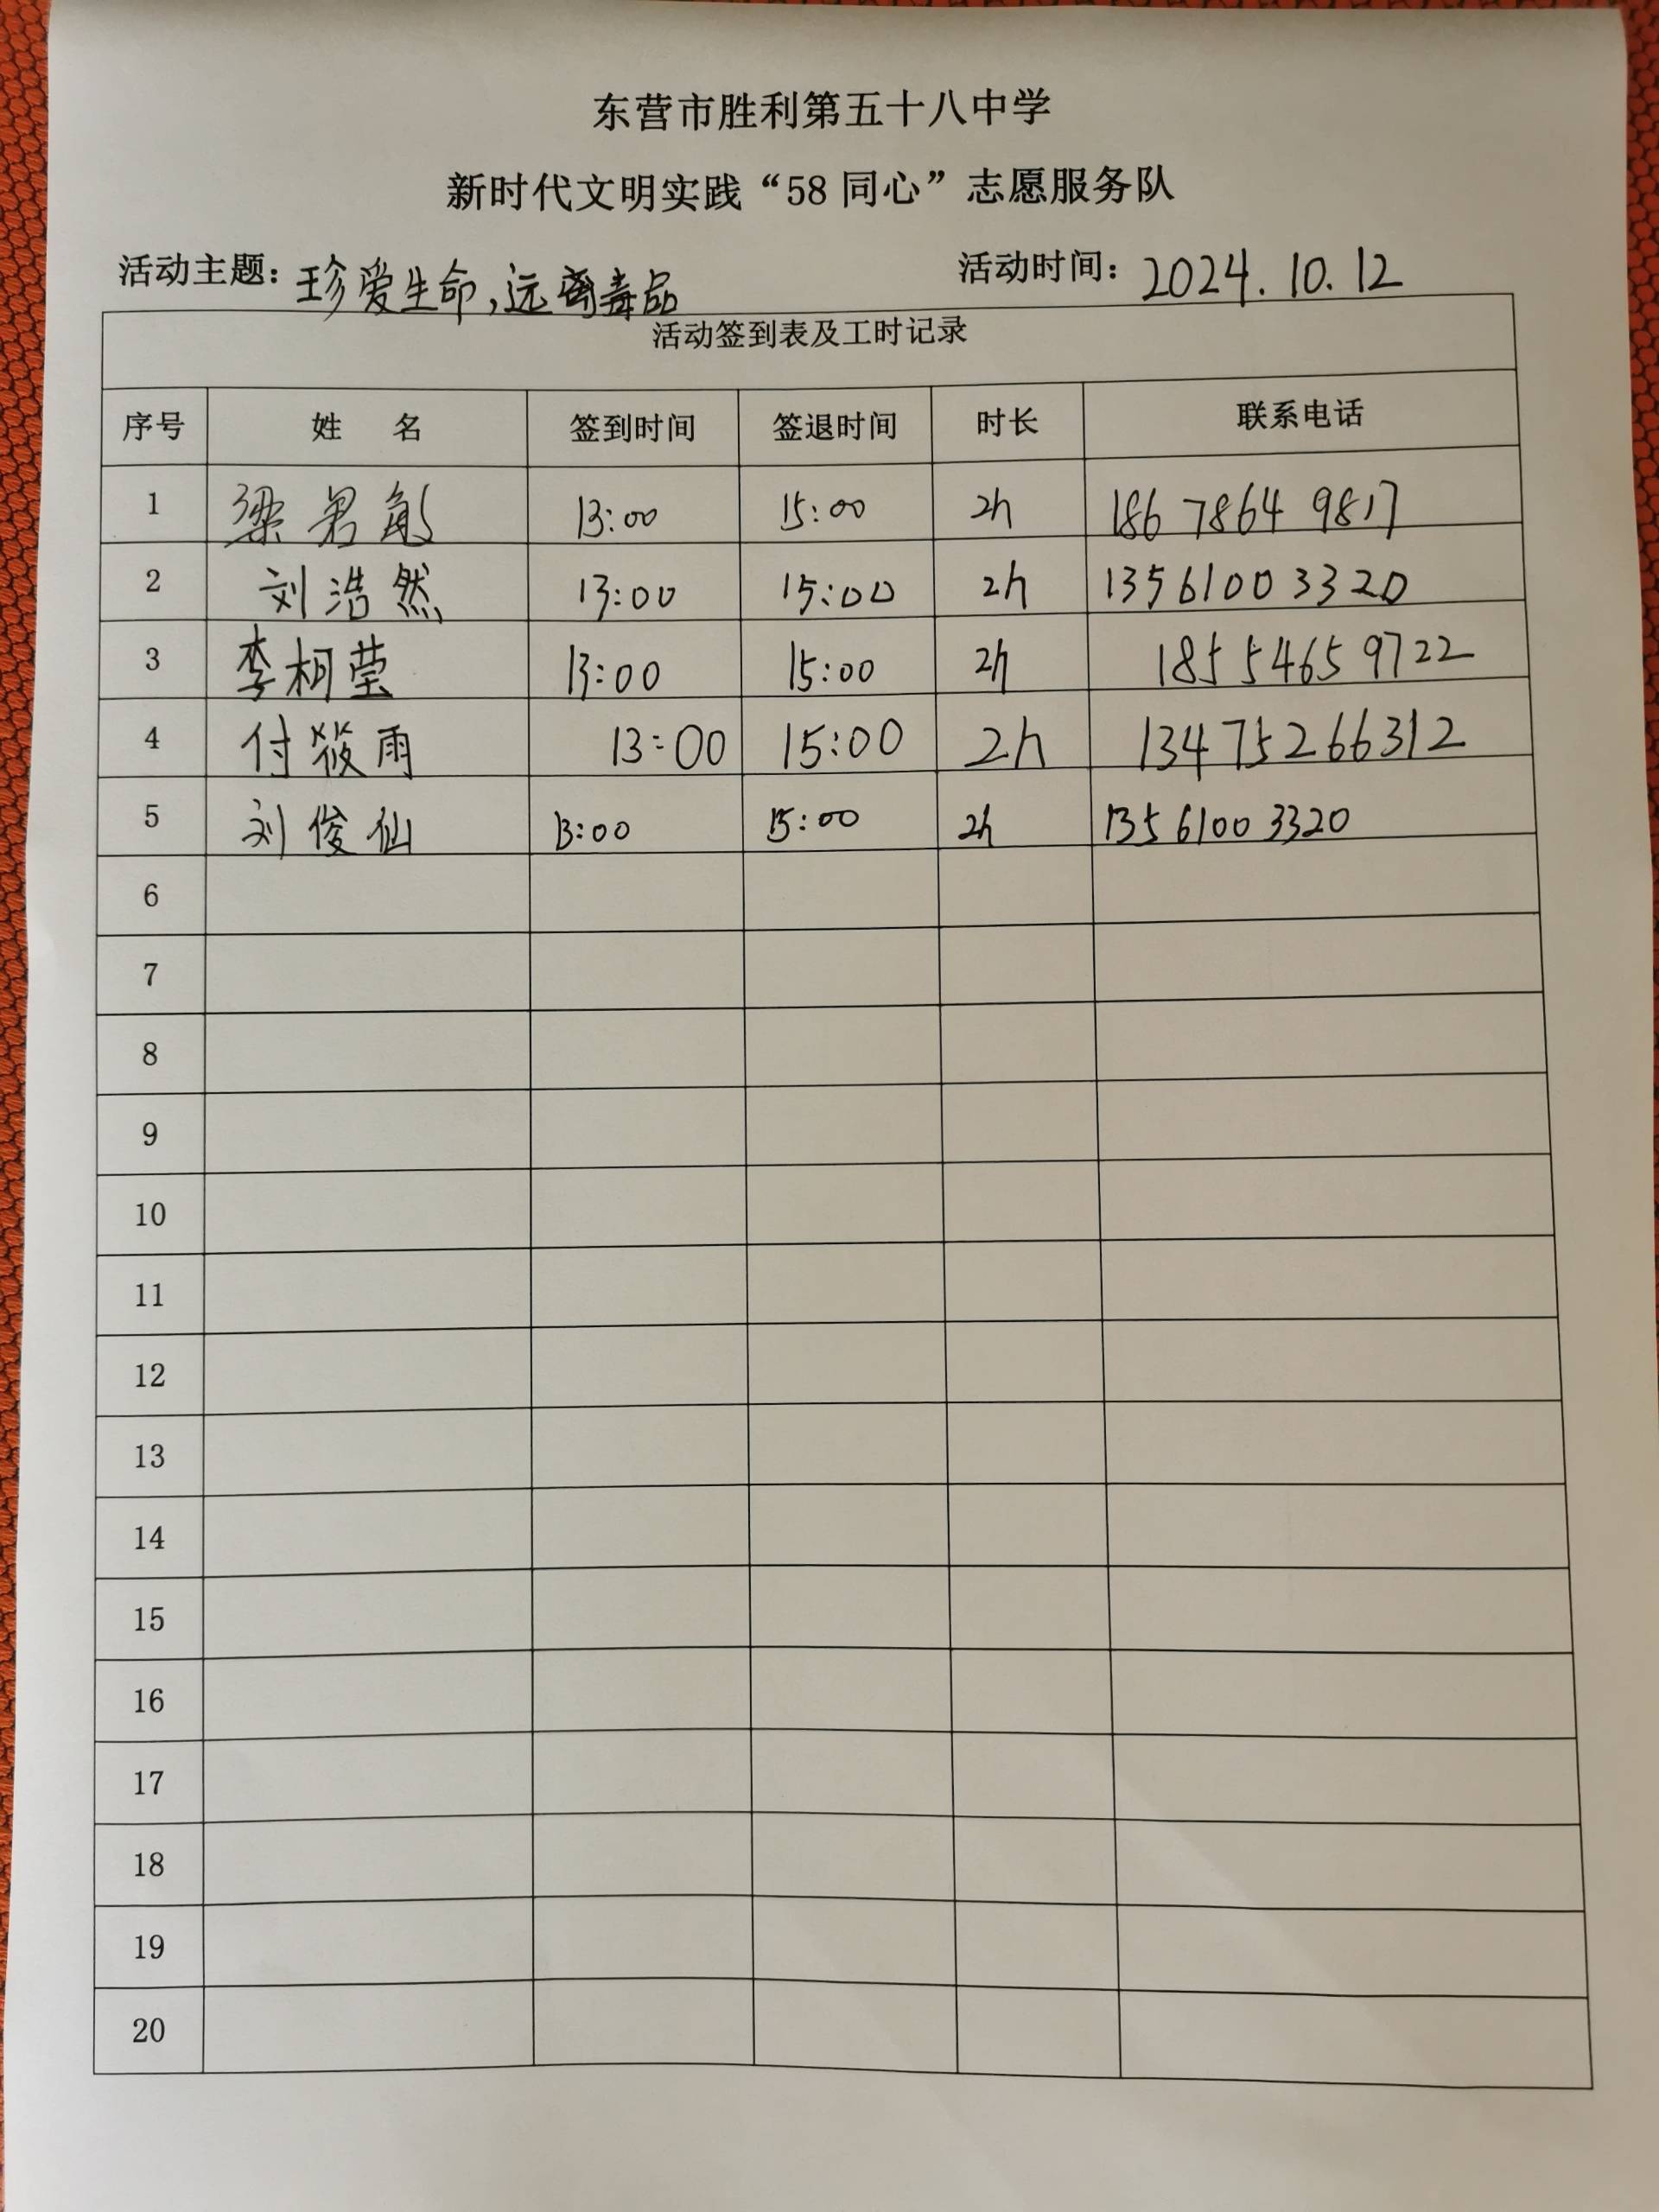 东营市胜利第五十八中学
新时代文明实践“58 同心”志愿服务队
活动主题：珍爱生命,远离毒品 活动时间：2024.10.12
活动签到表及工时记录
序号 姓 名 签到时间 签退时间 时长 联系电话
1 梁君 13:00 15:00 2h 186 7864 9817
2 刘浩然 13:00 15:00 2h 13561003320
3 李柯莹 13:00 15:00 2h 18554659722
4 付筱雨 13:00 15:00 2h 13475266312
5 刘俊仙 13:00 15:00 2h 13561003320
6
7
8
9
10
11
12
13
14
15
16
17
18
19
20